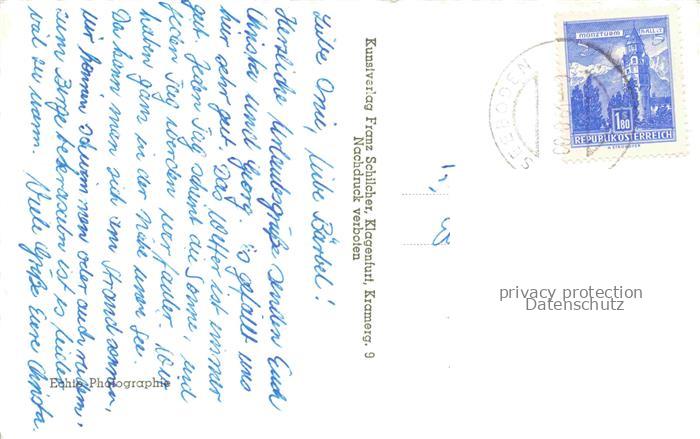 Liebe Omi, liebe Bärbel!
Herzliche Urlaubsgrüße senden Euch
Christa und Georg. Es gefällt uns
hier sehr gut. Das Wetter ist immer
gut. Jeden Tag scheint die Sonne, und
jeden Tag werden wir fauler. Wir
haben ganz in der Nähe einen See.
Da kann man sich am Strand sonnen,
wir können schwimmen oder auch rudern,
zum Berge bekraxeln ist es leider
viel zu warm. Viele Grüße Eure Christa.
Echte Photographie
Kunstverlag Franz Schilcher, Klagenfurt, Kramerg. 9
Nachdruck verboten
MÜNZTURM HALL i. T.
S 1.80
REPUBLIK ÖSTERREICH
SEEBODEN
privacy protection
Datenschutz